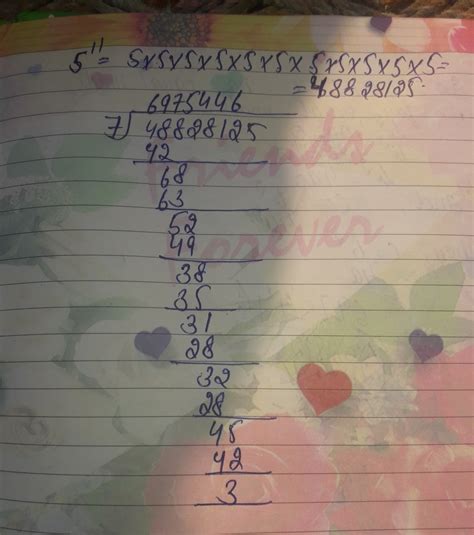 5¹¹ = 5×5×5×5×5×5×5×5×5×5×5=
= 48828125.
6975446
7)48828125
42
68
63
52
49
38
35
31
28
32
28
45
42
3
Friends
Forever